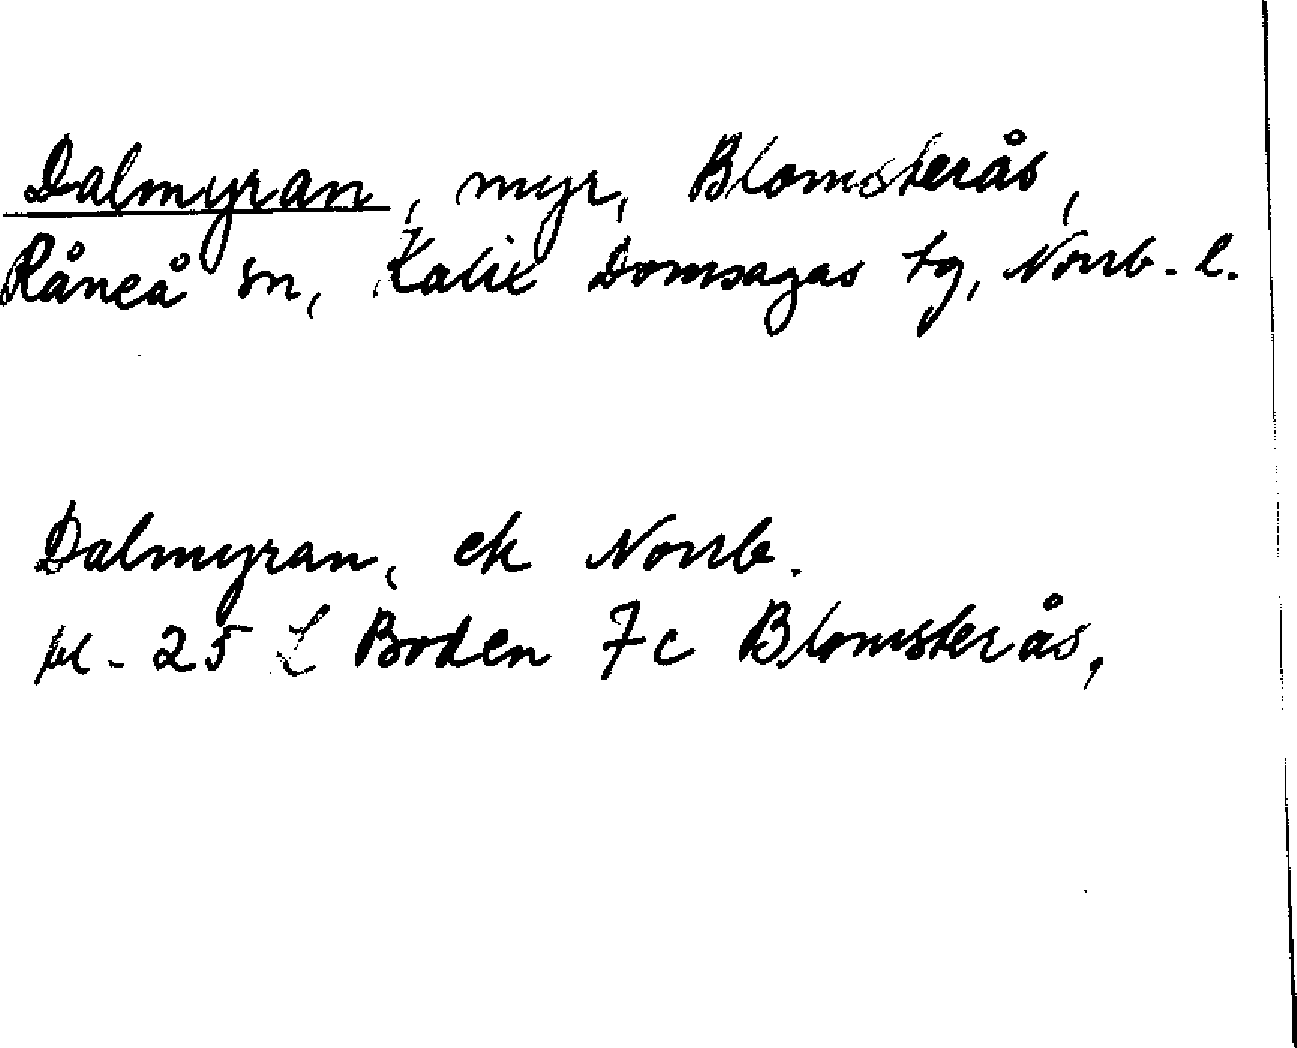 Dalmyran, myr, Blomsterås,
Råneå sn, Kalix Domsagas tg, Norrb. l.
Dalmyran, ek Norrb.
bl. 25 L Boden 7c Blomsterås,